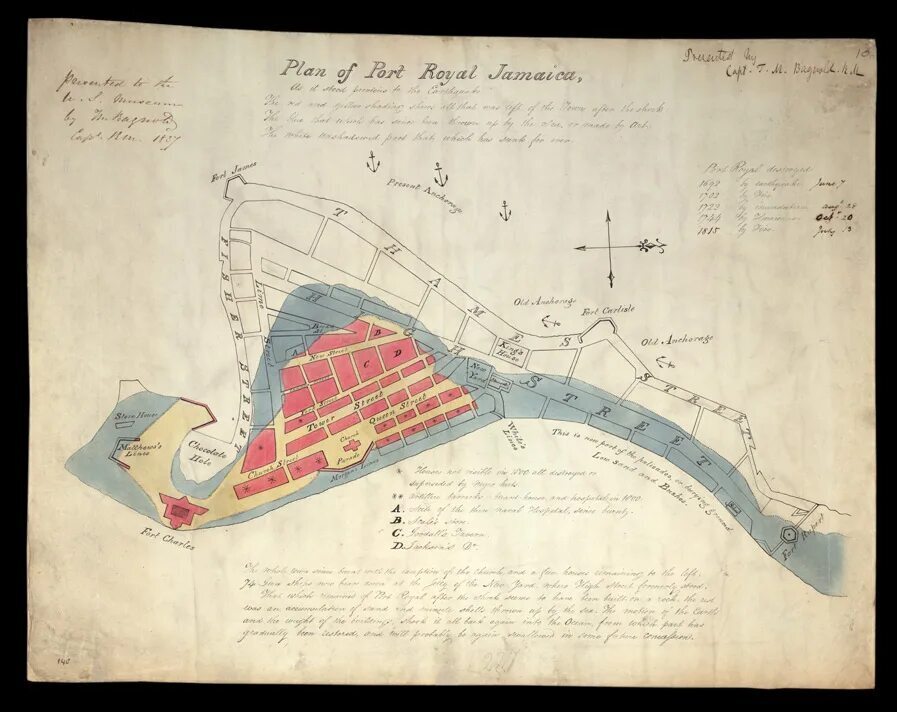 Presented by
Capt. T. M. Bagnold R.M
presented to the
U. S. Museum
by Tho Bagnold
Capt. R.m. 1837
Plan of Port Royal Jamaica,
As it stood previous to the Earthquake
The red and yellow shading shews all that was left of the Town after the shock
The blue that which has since been thrown up by the Sea, or made by Art.
The white unshadowed part that which has sunk for ever.
Port Royal destroyed
1692 by earthquake June 7
1703 by Fire
1722 by inundation Augt 28
1744 by Hurricane Oct 20
1815 by Fire July 13
Fort James
Present Anchorage
THAMES STREET
FISHER STREET
Lime Street
HIGH STREET
Old Anchorage
Fort Carlisle
Old Anchorage
King's House
New Yard
New Street
A
B
C
D
Tower Street
Queen Street
Church
Parade
Church Street
Morgans Lines
Whites Lines
Store House
Matthews's Lines
Chocolate Hole
Fort Charles
This is now part of the palisades, or burying ground
Low sand and Bushes
Fort Rupert
Houses not visible in 1800 all destroyed or
superseded by Negro huts
** Artillery barracks - Guard house, and hospitals in 1800.
A. Scite of the then naval Hospital, since burnt.
B. Scite's Store.
C. Goodall's Tavern.
D. Jackson's Do.
The whole town since burnt with the exception of the church and a few houses remaining to the left.
74 Gun Ships now heave down at the Jetty of the New Yard, where High Street formerly stood.
That which remained of Port Royal after the shock seems to have been built on a rock, the rest
was an accumulation of sand and minute shells thrown up by the sea. The motion of the Earth
and the weight of the buildings, shook it all back again into the Ocean, from which part has
gradually been restored, and will probably be again swallowed in some future concussions.
140